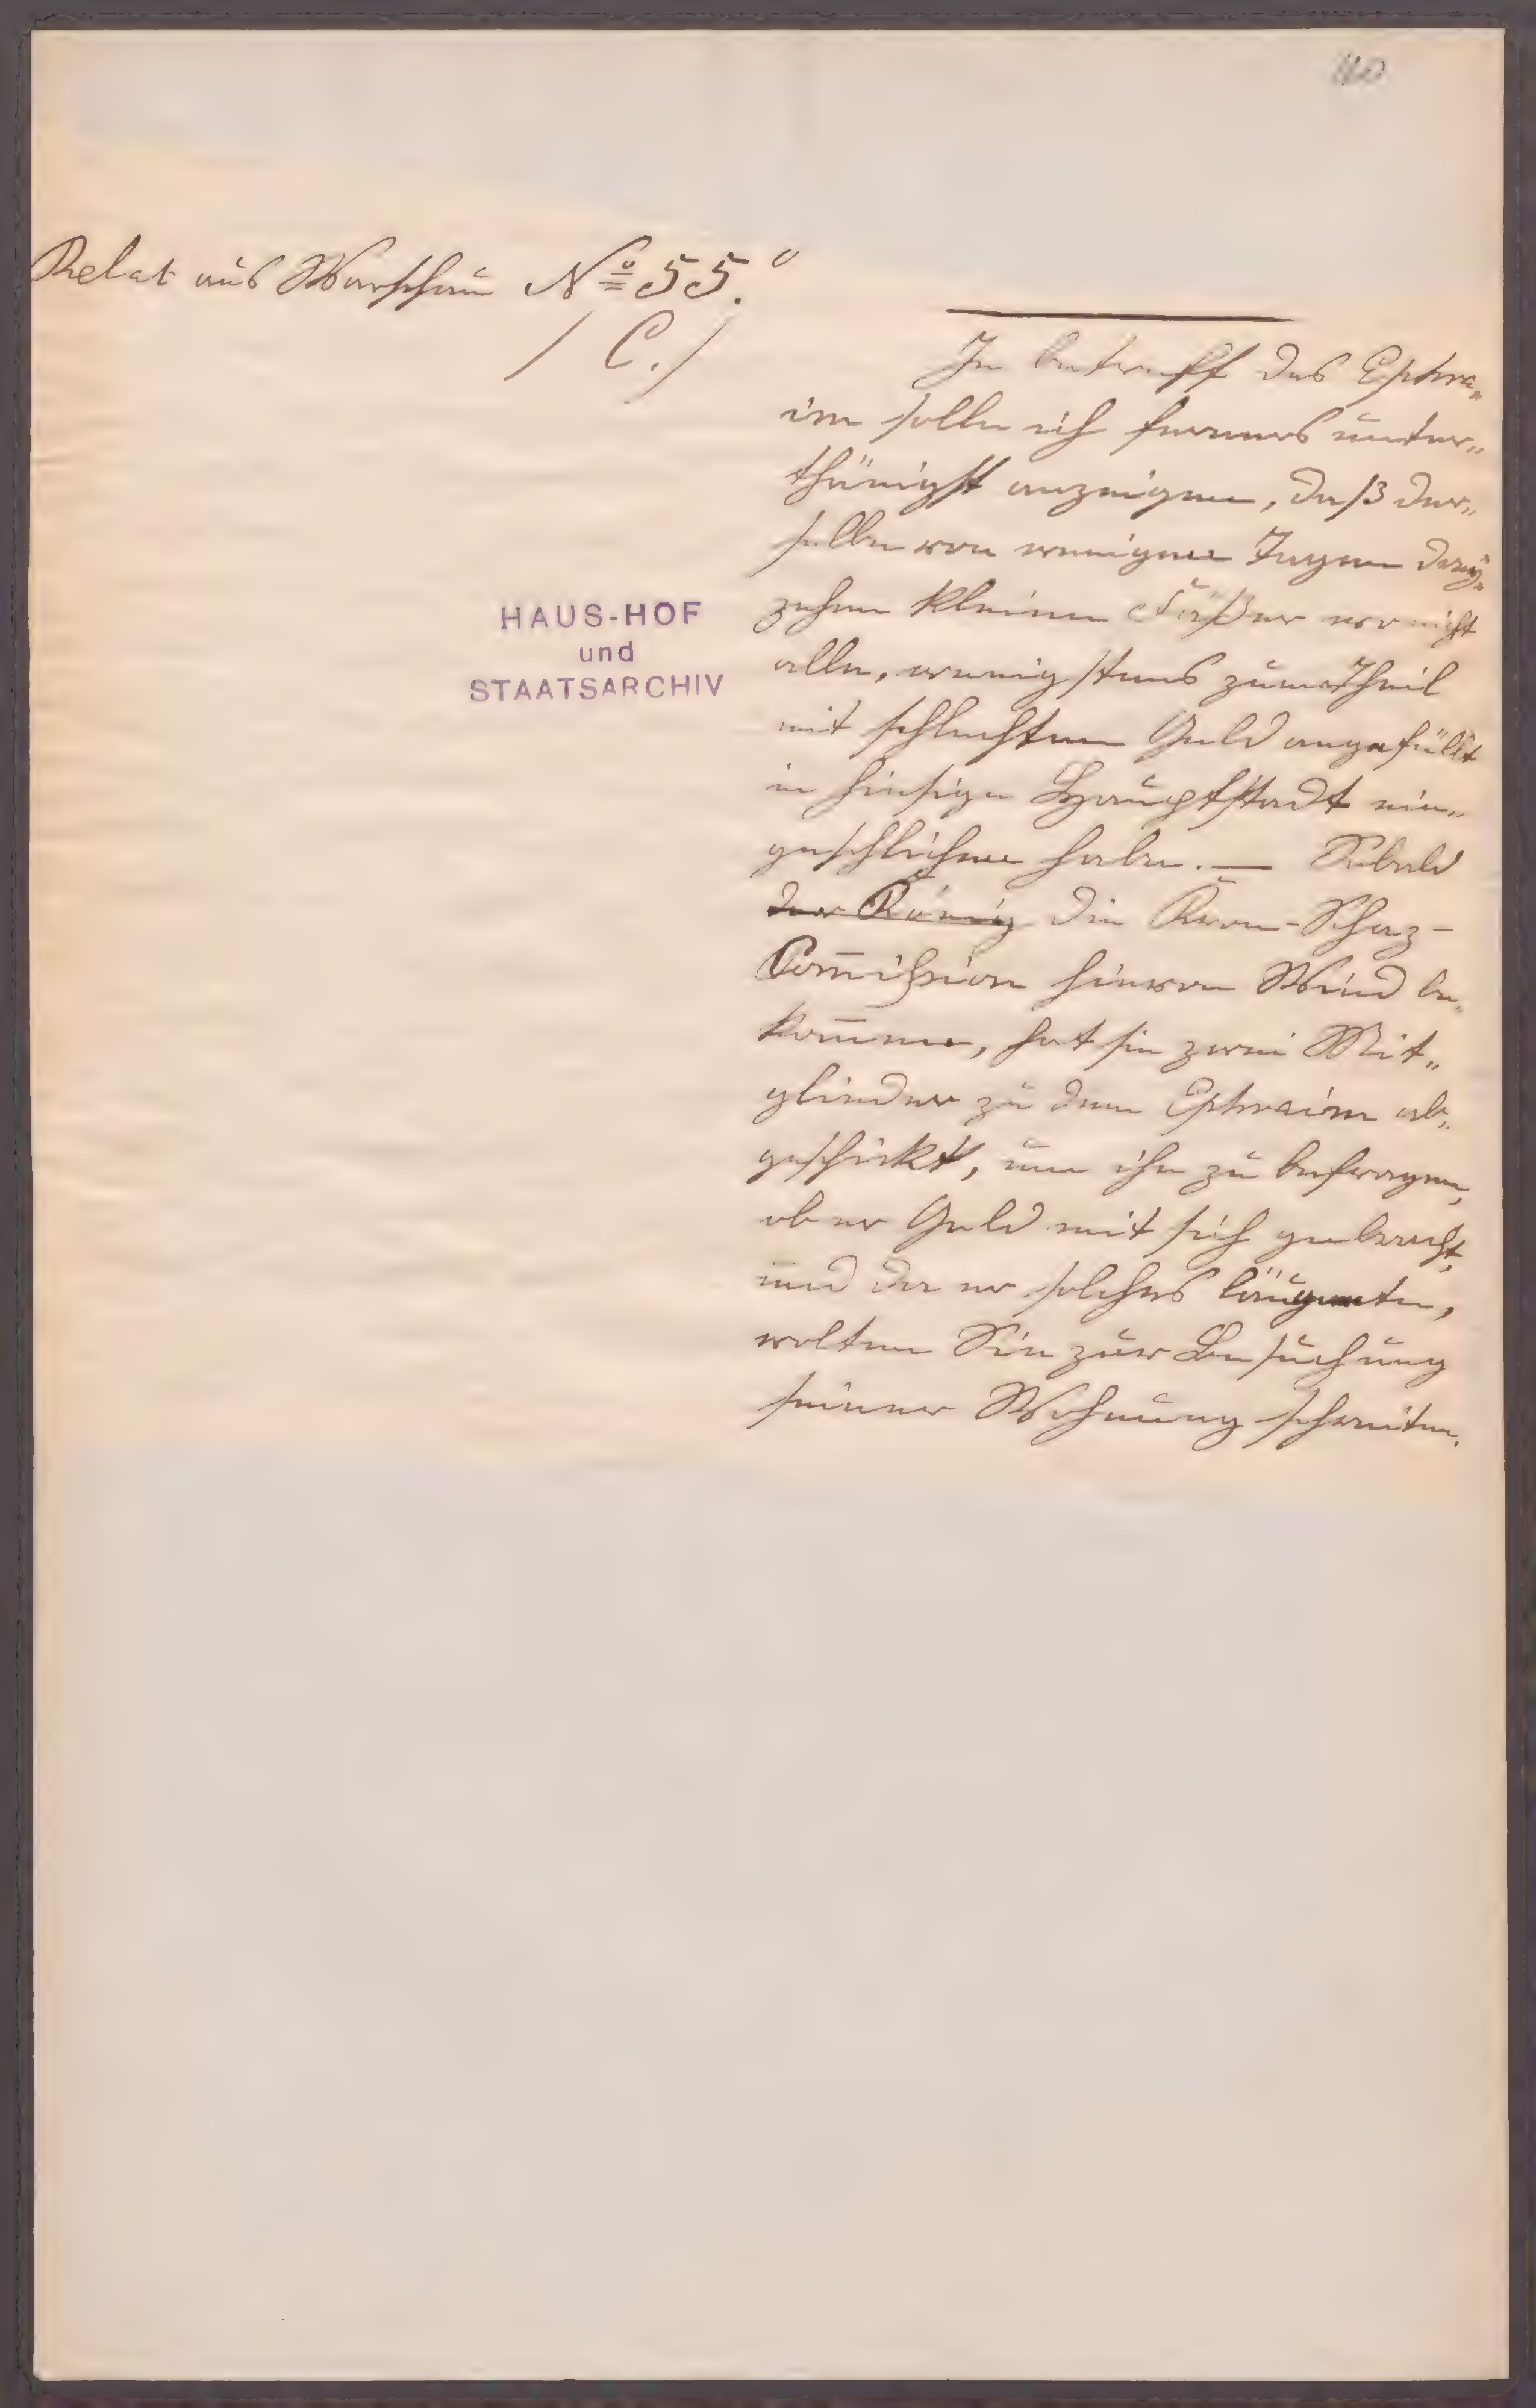 110
Relat aus Warschau No 55.
/ C. /
In betreff des Ephra„
im solle ich ferners unter„
thänigst anzeigen, daß der„
selbe vor wenigen Tagen drey„
zehen kleine Fäßer wo nicht
alle, wenigstens zum Theil
mit schlechtem Geld angefüllt
in hiesige Hauptstadt ein„
geschlichen habe. — Sobald
der König die Kron-Schaz-
Com̅ission hievon Wind be„
kom̅en, hat sie zwei Mit„
glieder zu dem Ephraim ab„
geschickt, um ihn zu befragen,
ob er Geld mit sich gebracht,
und da er solches läugnete,
wolten Sie zur Besuchung
seiner Wohnung schreiten.
HAUS-HOF
und
STAATSARCHIV